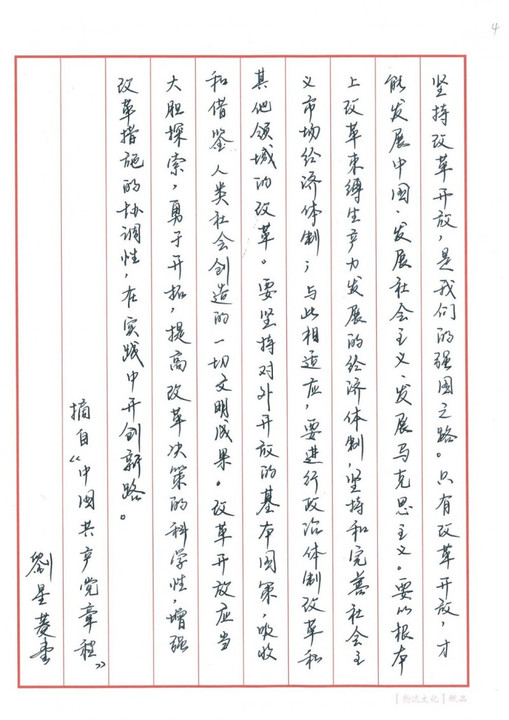 4
坚持改革开放，是我们的强国之路。只有改革开放，才
能发展中国、发展社会主义、发展马克思主义。要从根本
上改革束缚生产力发展的经济体制，坚持和完善社会主
义市场经济体制；与此相适应，要进行政治体制改革和
其他领域的改革。要坚持对外开放的基本国策，吸收
和借鉴人类社会创造的一切文明成果。改革开放应当
大胆探索，勇于开拓，提高改革决策的科学性，增强
改革措施的协调性，在实践中开创新路。
摘自《中国共产党章程》
刘星菱书
文化 纸品